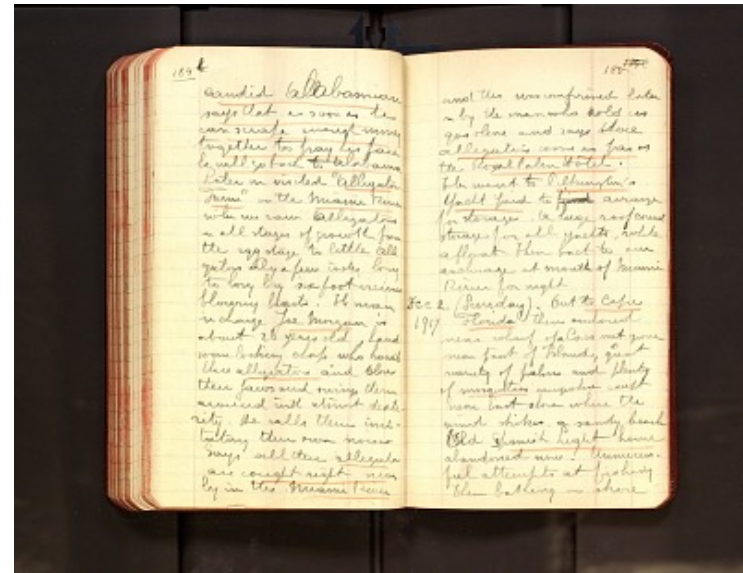 184
candid Alabamian
says that as soon as he
can scrape enough money
together to pay his fare
he will go back to Alabama
Later on visited "Alligator
Farm" on the Miami River
when we saw alligators
in all stages of growth from
the egg stage to little alli
gators only a few inches long
to long big six foot vicious
blowing beasts. The man
in charge Joe Morgan is
about 28 years old, hand
some looking chap who handles
the alligators and
their jaws and swings them
around with utmost dexte
rity. He calls them imi-
tating their own noises
says all these alligators
are caught right near
by in the Miami River
185
and this was confirmed later
by the man who sold us
gasolene and says that
alligators come as far as
the Royal Palm Hotel.
We went to Pilkington's
Yacht Yard to arrange
for storage. A huge roof covered
storage for all yachts, while
afloat. Then back to our
anchorage at mouth of Miami
River for night
Dec 2 (Sunday). Out to Cape
1917 Florida then anchored
near wharf of Cocoanut grove
near foot of Island, great
variety of palms and plenty
of mosquitos except
near east shore where the
wind strikes a sandy beach
Old Spanish Light house
abandoned now. Unsuccess-
ful attempts at fishing
Then bathing on shore